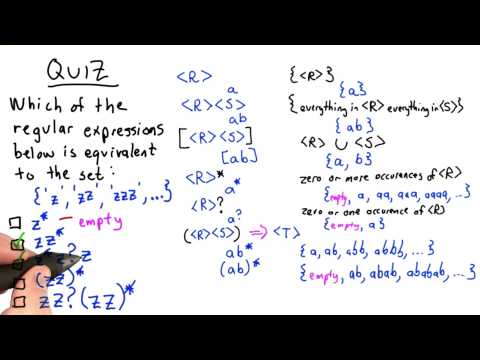 QUIZ
Which of the
regular expressions
below is equivalent
to the set:
{'z', 'zz', 'zzz', ...}
z* — empty
zz*
z?z
(zz)*
zz?(zz)*
<R>
a
<R><S>
ab
[<R><S>]
[ab]
<R>*
a*
<R>?
a?
(<R><S>) ⇒ <T>
ab*
(ab)*
{<R>}
{a}
{everything in <R> everything in <S>}
{ab}
<R> ∪ <S>
{a, b}
zero or more occurences of <R>
{empty, a, aa, aaa, aaaa, ..}
zero or one occurence of <R>
{empty, a}
{a, ab, abb, abbb, ...}
{empty, ab, abab, ababab, ...}